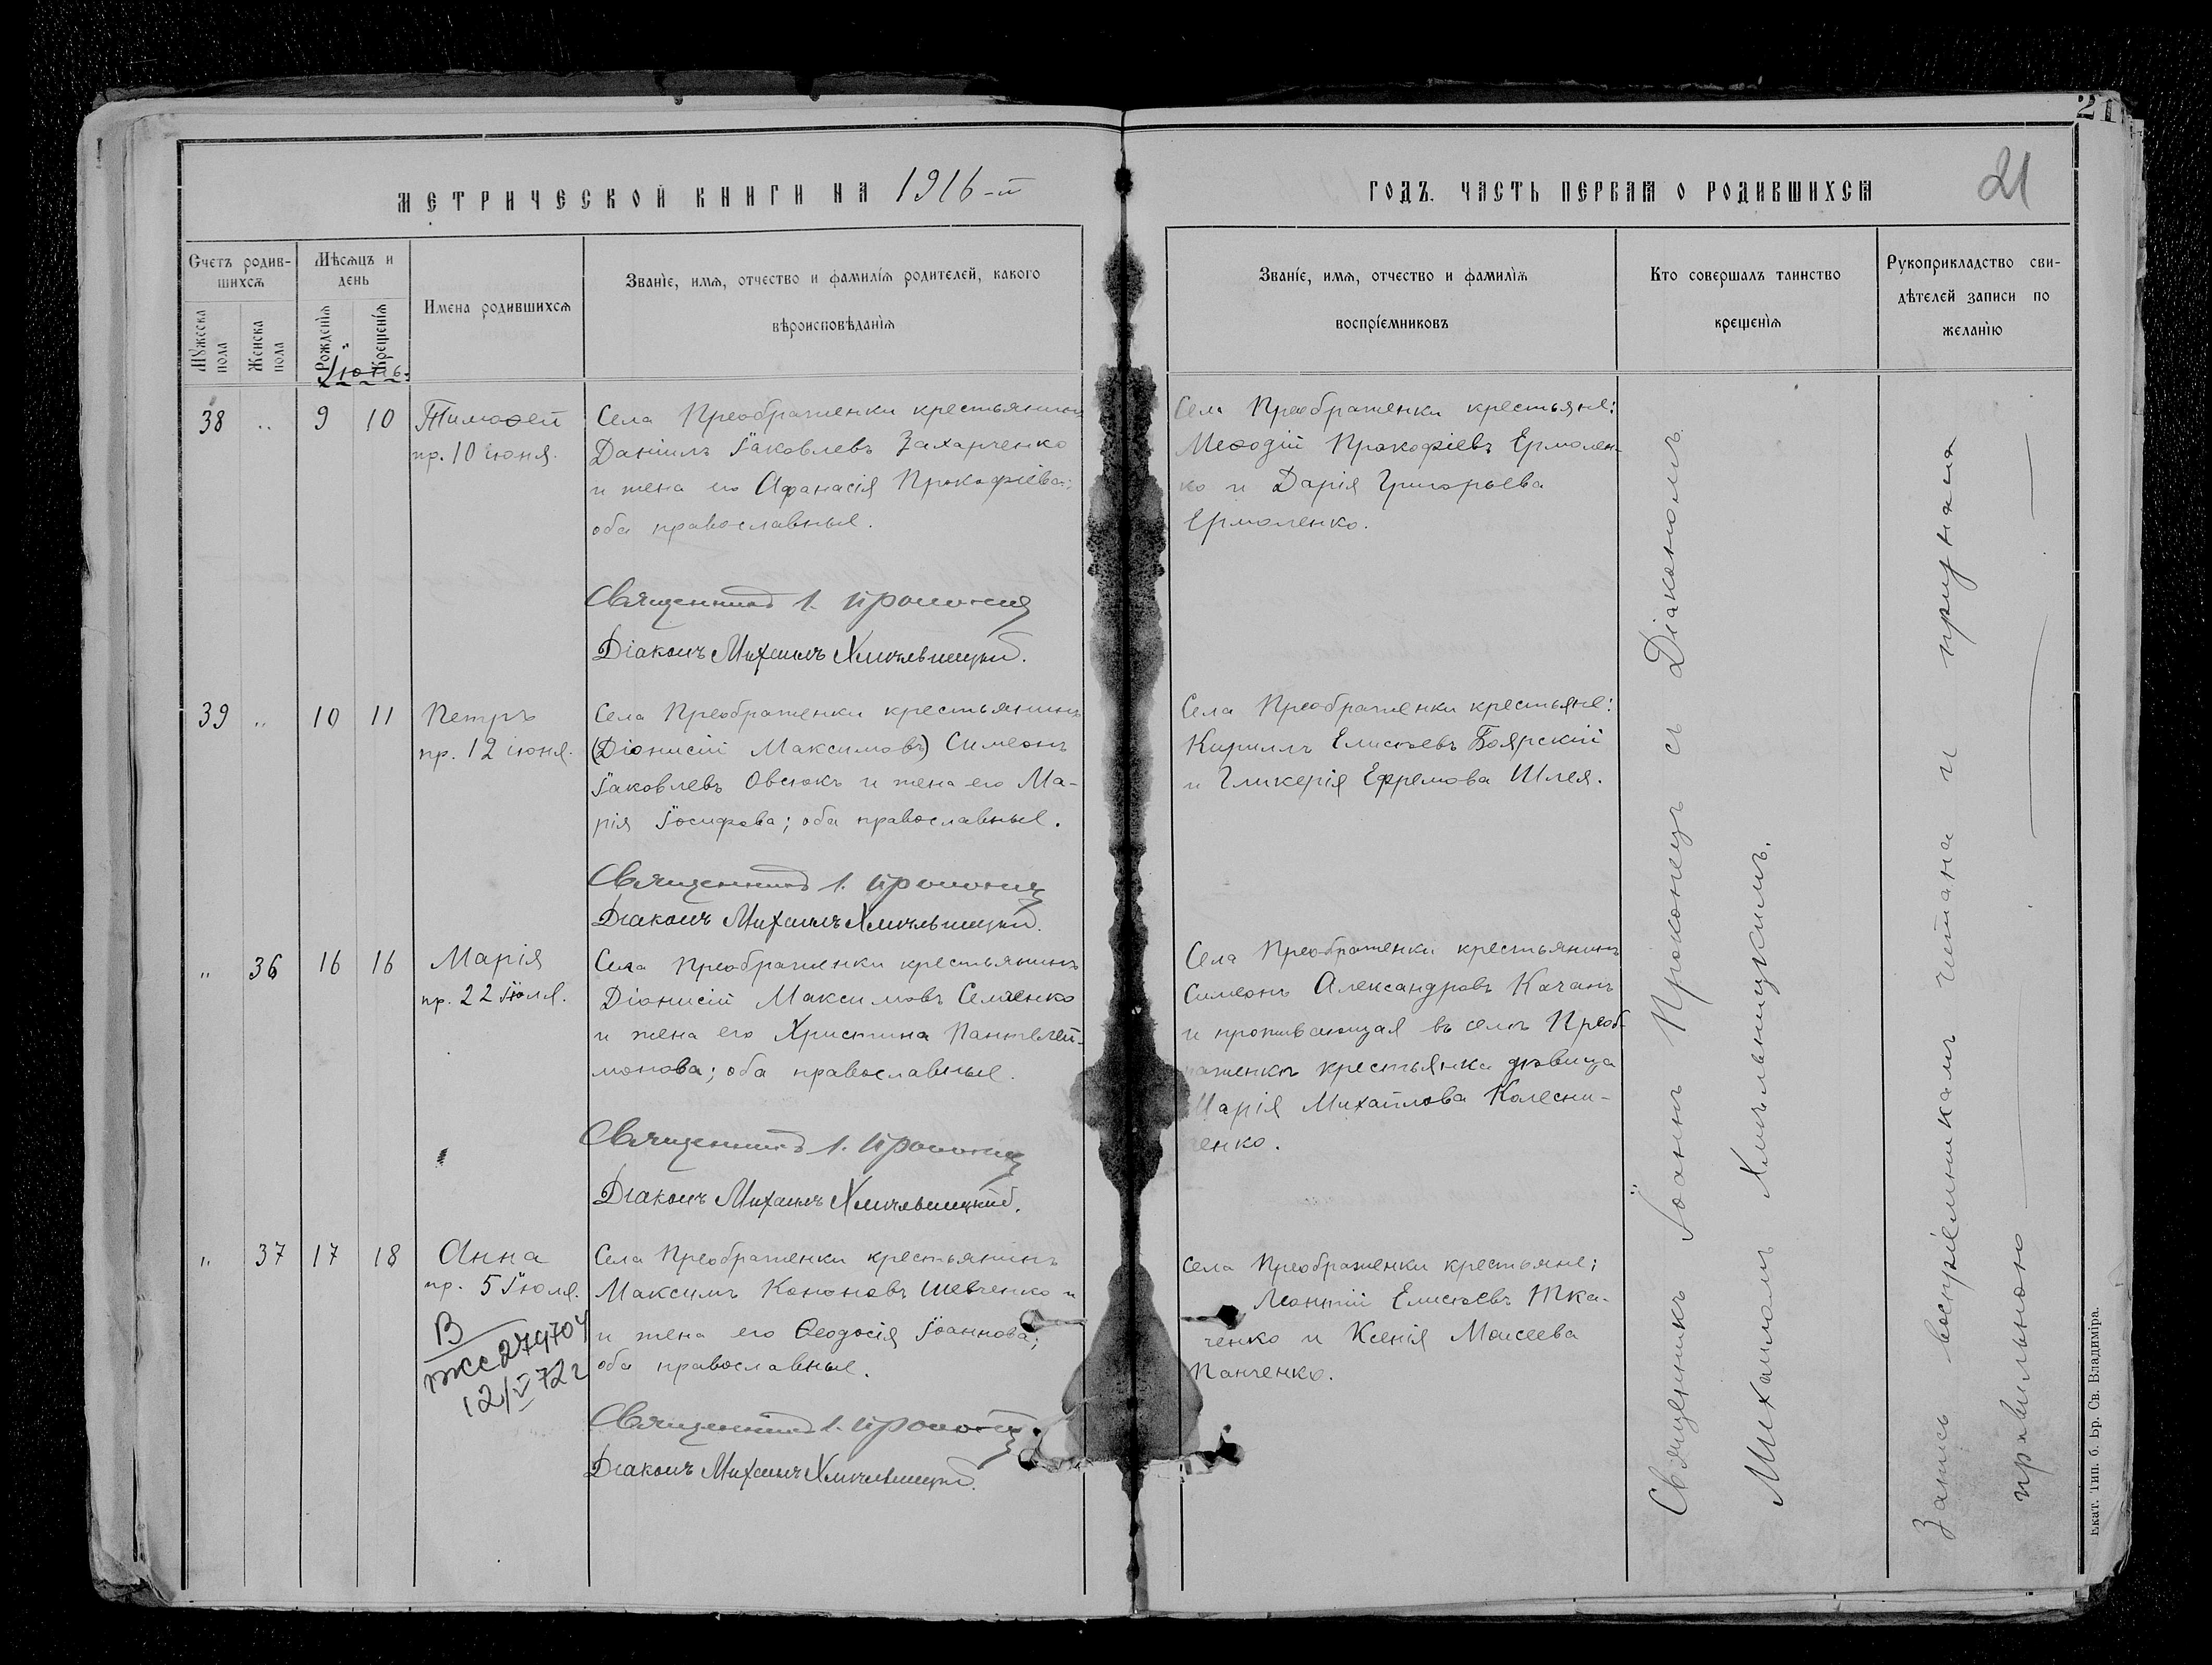 21
МЕТРИЧЕСКОЙ КНИГИ НА 1916-й
ГОДЪ. ЧАСТЬ ПЕРВАЯ О РОДИВШИХСЯ
21
Счетъ родив-
шихся
Мѣсяцъ и
день
Имена родившихся
Званіе, имя, отчество и фамилія родителей, какого
вѣроисповѣданія
Званіе, имя, отчество и фамилія
воспріемниковъ
Кто совершалъ таинство
крещенія
Рукоприкладство сви-
дѣтелей записи по
желанію
Мужеска
пола
Женска
пола
Рожденія
Крещенія
Іюнь.
38 „ 9 10
Тимоѳей
пр. 10 іюня.
Села Преображенки крестьянинъ
Даніилъ Іаковлевъ Захарченко
и жена его Афанасія Прокофіева;
оба православные.
Священникъ І.
Діаконъ Михаилъ Хмѣльницкій.
Села Преображенки крестьяне:
Меѳодій Прокофіевъ Ермолен-
ко и Дарія Григорьева
Ермоленко.
39 „ 10 11
Петръ
пр. 12 іюня.
Села Преображенки крестьянинъ
(Діонисій Максимовъ) Симеонъ
Іаковлевъ Овсюкъ и жена его Ма-
рія Іосифова; оба православные.
Священникъ І.
Діаконъ Михаилъ Хмѣльницкій.
Села Преображенки крестьяне:
Кириллъ Елисѣевъ Боярскій
и Гликерія Ефремова Шлея.
„ 36 16 16
Марія
пр. 22 Іюля.
Села Преображенки крестьянинъ
Діонисій Максимовъ
и жена его Христина Пантелей-
монова; оба православные.
Священникъ І.
Діаконъ Михаилъ Хмѣльницкій.
Села Преображенки крестьянинъ
Симеонъ Александровъ Качанъ
и проживающая въ селѣ Преоб-
раженкѣ крестьянка дѣвица
Марія Михайлова Колесни-
ченко.
„ 37 17 18
Анна
пр. 5 Іюля.
В
279704
12/V 72 г
Села Преображенки крестьянинъ
Максимъ Кононовъ Шевченко и
и жена его Ѳеодосія Іоаннова;
оба православные.
Священникъ І.
Діаконъ Михаилъ Хмѣльницкій.
Села Преображенки крестьяне:
Леонтій Елисѣевъ Тка-
ченко и Ксенія Моисеева
Панченко.
Священникъ Іоаннъ Проконецъ съ Діакономъ
Михаиломъ Хмѣльницкимъ.
Запись воспріемникамъ читана и признана
правильною
Екат. Тип. б. Бр. Св. Владиміра.